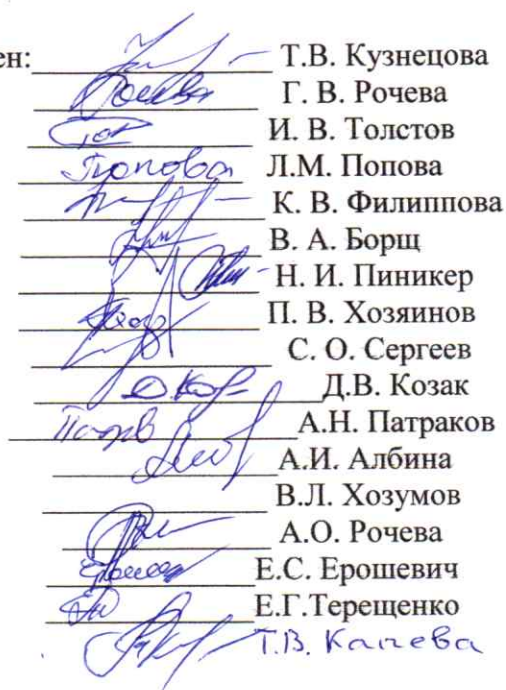 ен: Т.В. Кузнецова
Г. В. Рочева
И. В. Толстов
Попова Л.М. Попова
К. В. Филиппова
В. А. Борщ
Н. И. Пиникер
П. В. Хозяинов
С. О. Сергеев
Д.В. Козак
А.Н. Патраков
А.И. Албина
В.Л. Хозумов
А.О. Рочева
Е.С. Ерошевич
Е.Г.Терещенко
Т.В. Канева